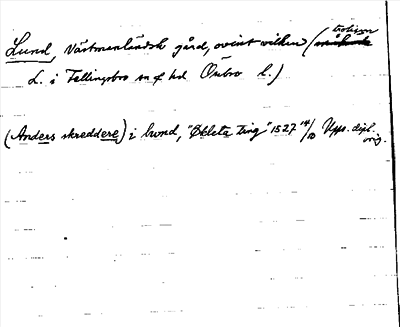 Lund, Västmanländsk gård, ovisst vilken (troligen
L. i Fellingsbro sn o hd Örebro l.)
(Anders skreddere) i lwnd, "Økleta ting" 1527 14/10 Upps. dipl.
orig.